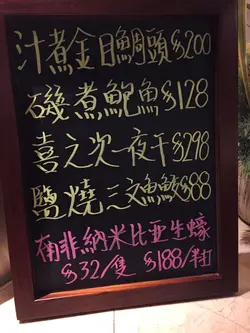 汁煮金目鯛頭$200
磯煮鮑魚$128
喜之次一夜干$298
鹽燒三文魚鮫$88
南非納米比亞生蠔
$32/隻 $188/半打